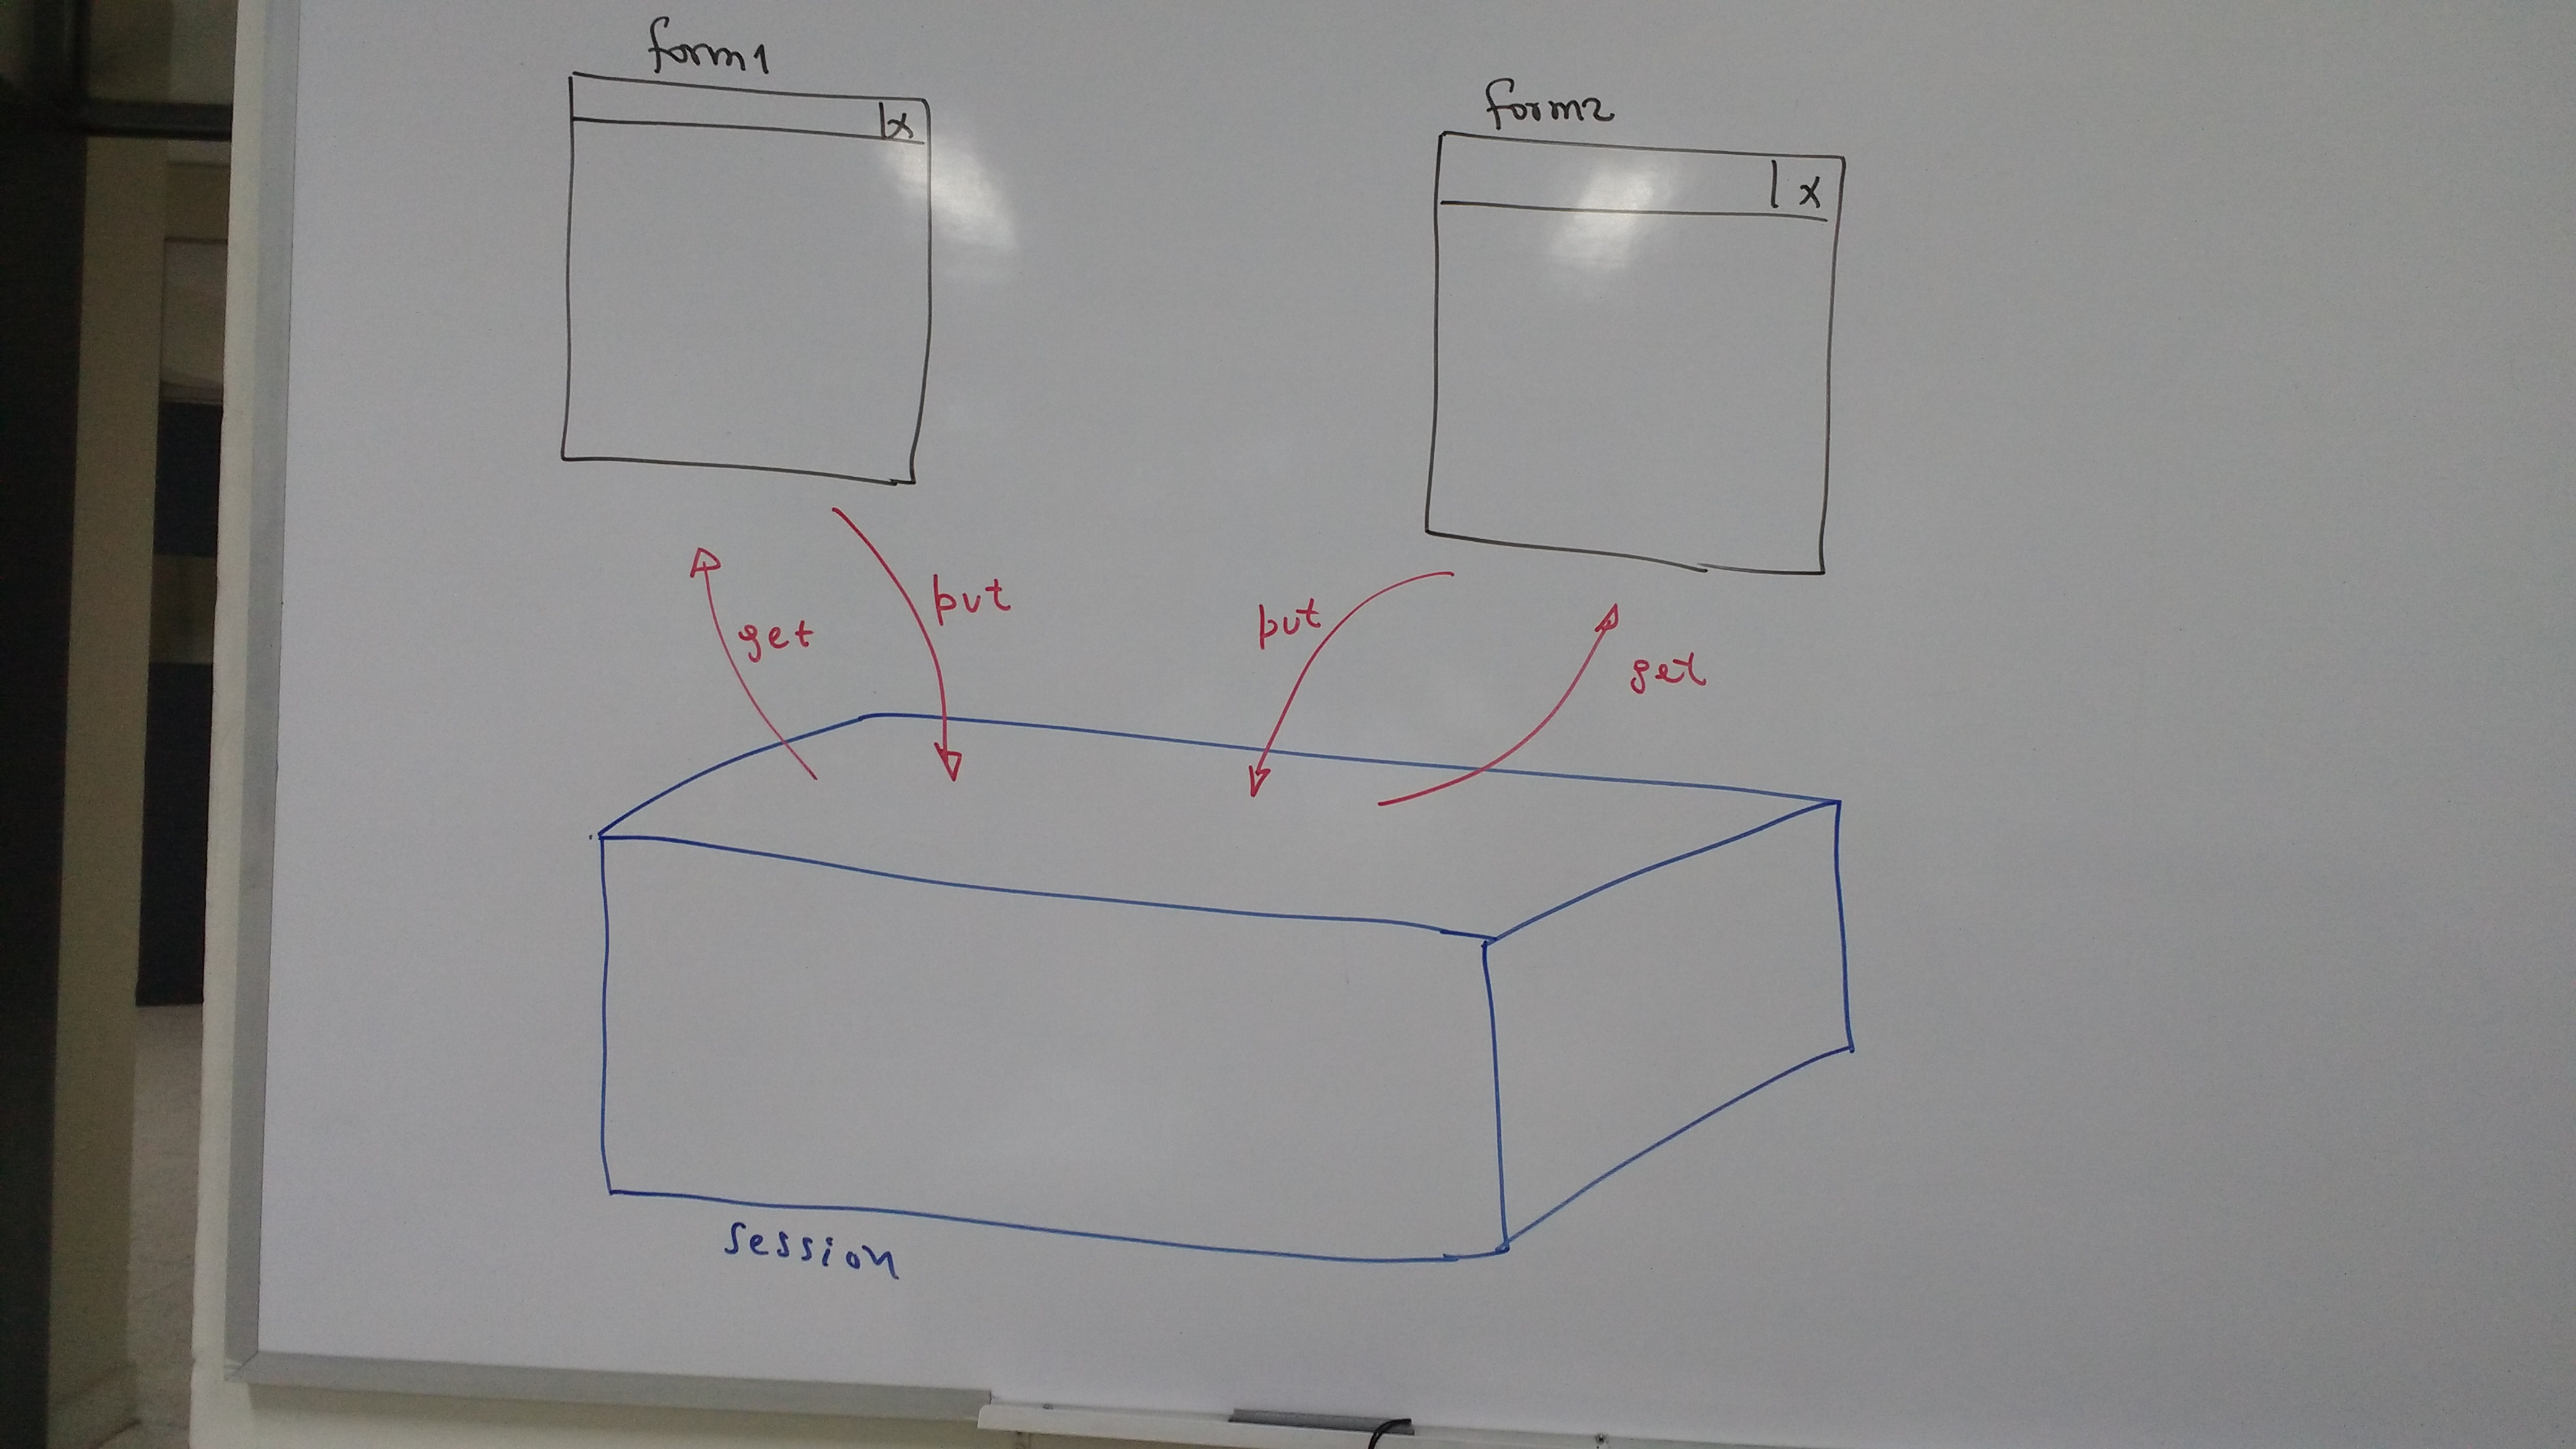 form1
x
form2
x
get
put
put
get
session